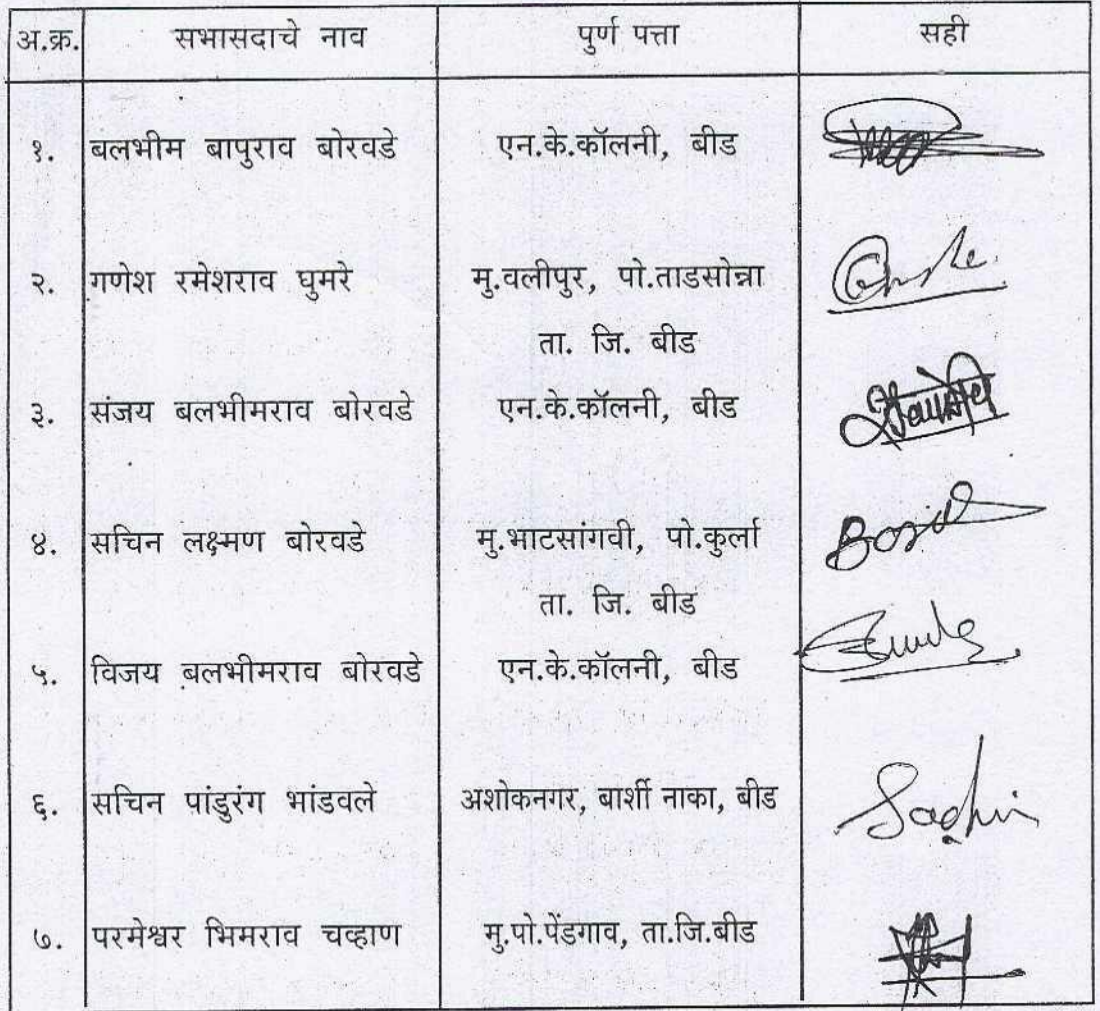 अ.क्र. सभासदाचे नाव पुर्ण पत्ता सही
१. बलभीम बापुराव बोरवडे एन.के.कॉलनी, बीड
२. गणेश रमेशराव घुमरे मु.वलीपुर, पो.ताडसोन्ना
ता. जि. बीड
३. संजय बलभीमराव बोरवडे एन.के.कॉलनी, बीड
४. सचिन लक्ष्मण बोरवडे मु.भाटसांगवी, पो.कुर्ला
ता. जि. बीड
५. विजय बलभीमराव बोरवडे एन.के.कॉलनी, बीड
६. सचिन पांडुरंग भांडवले अशोकनगर, बार्शी नाका, बीड Sachin
७. परमेश्वर भिमराव चव्हाण मु.पो.पेंडगाव, ता.जि.बीड